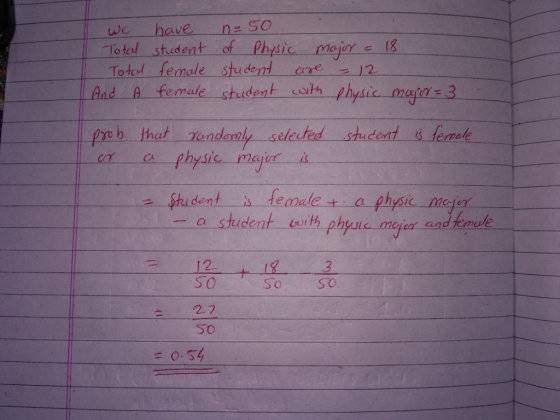 We have n= 50
Total student of Physic major = 18
Total female student are = 12
And A female student with physic major = 3
prob that randomly selected student is female
or a physic major is
= Student is female + a physic major
- a student with physic major and female
= 12/50 + 18/50 - 3/50
= 27/50
= 0.54